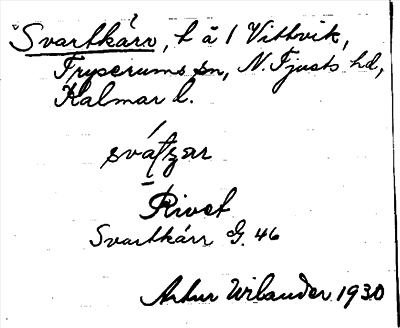 Svartkärr, t å 1 Vittvik,
Tryserums sn, N. Tjusts hd,
Kalmar l.
Rivet
Svartkärr G. 46
Artur Wilander 1930